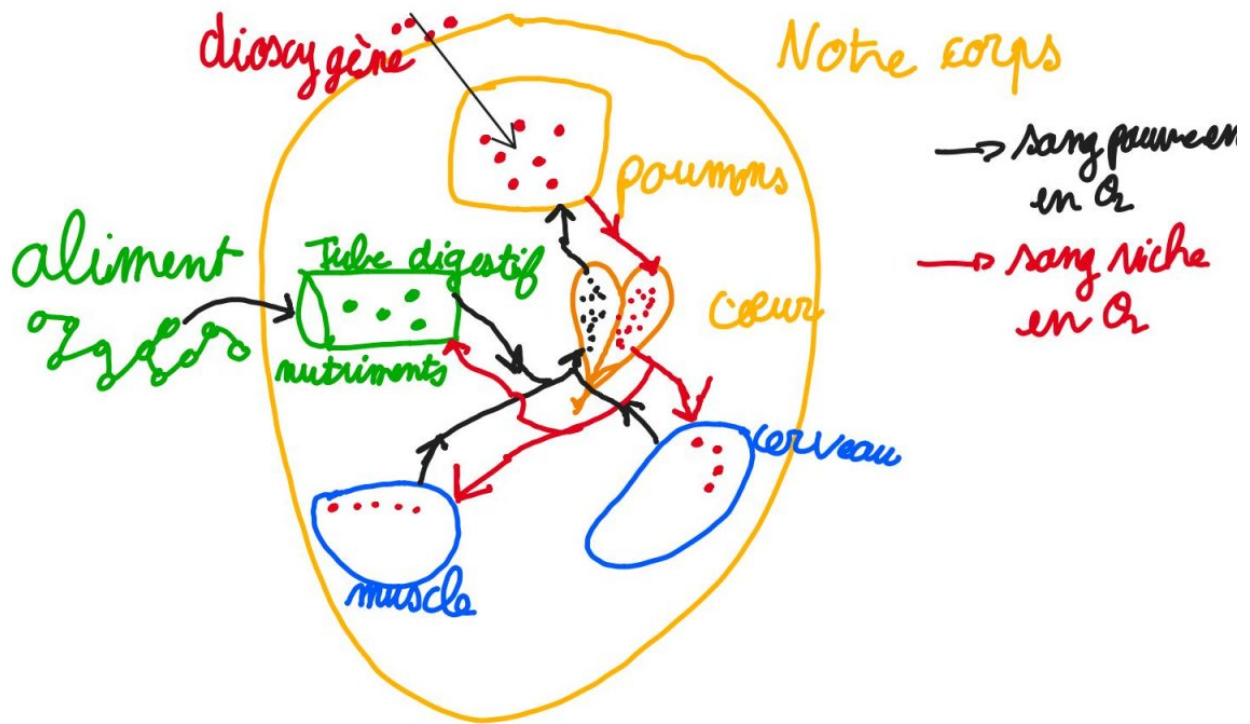 dioxygène
Notre corps
sang pauvre en
en O2
sang riche
en O2
poumons
aliment
Tube digestif
nutriments
cœur
cerveau
muscle